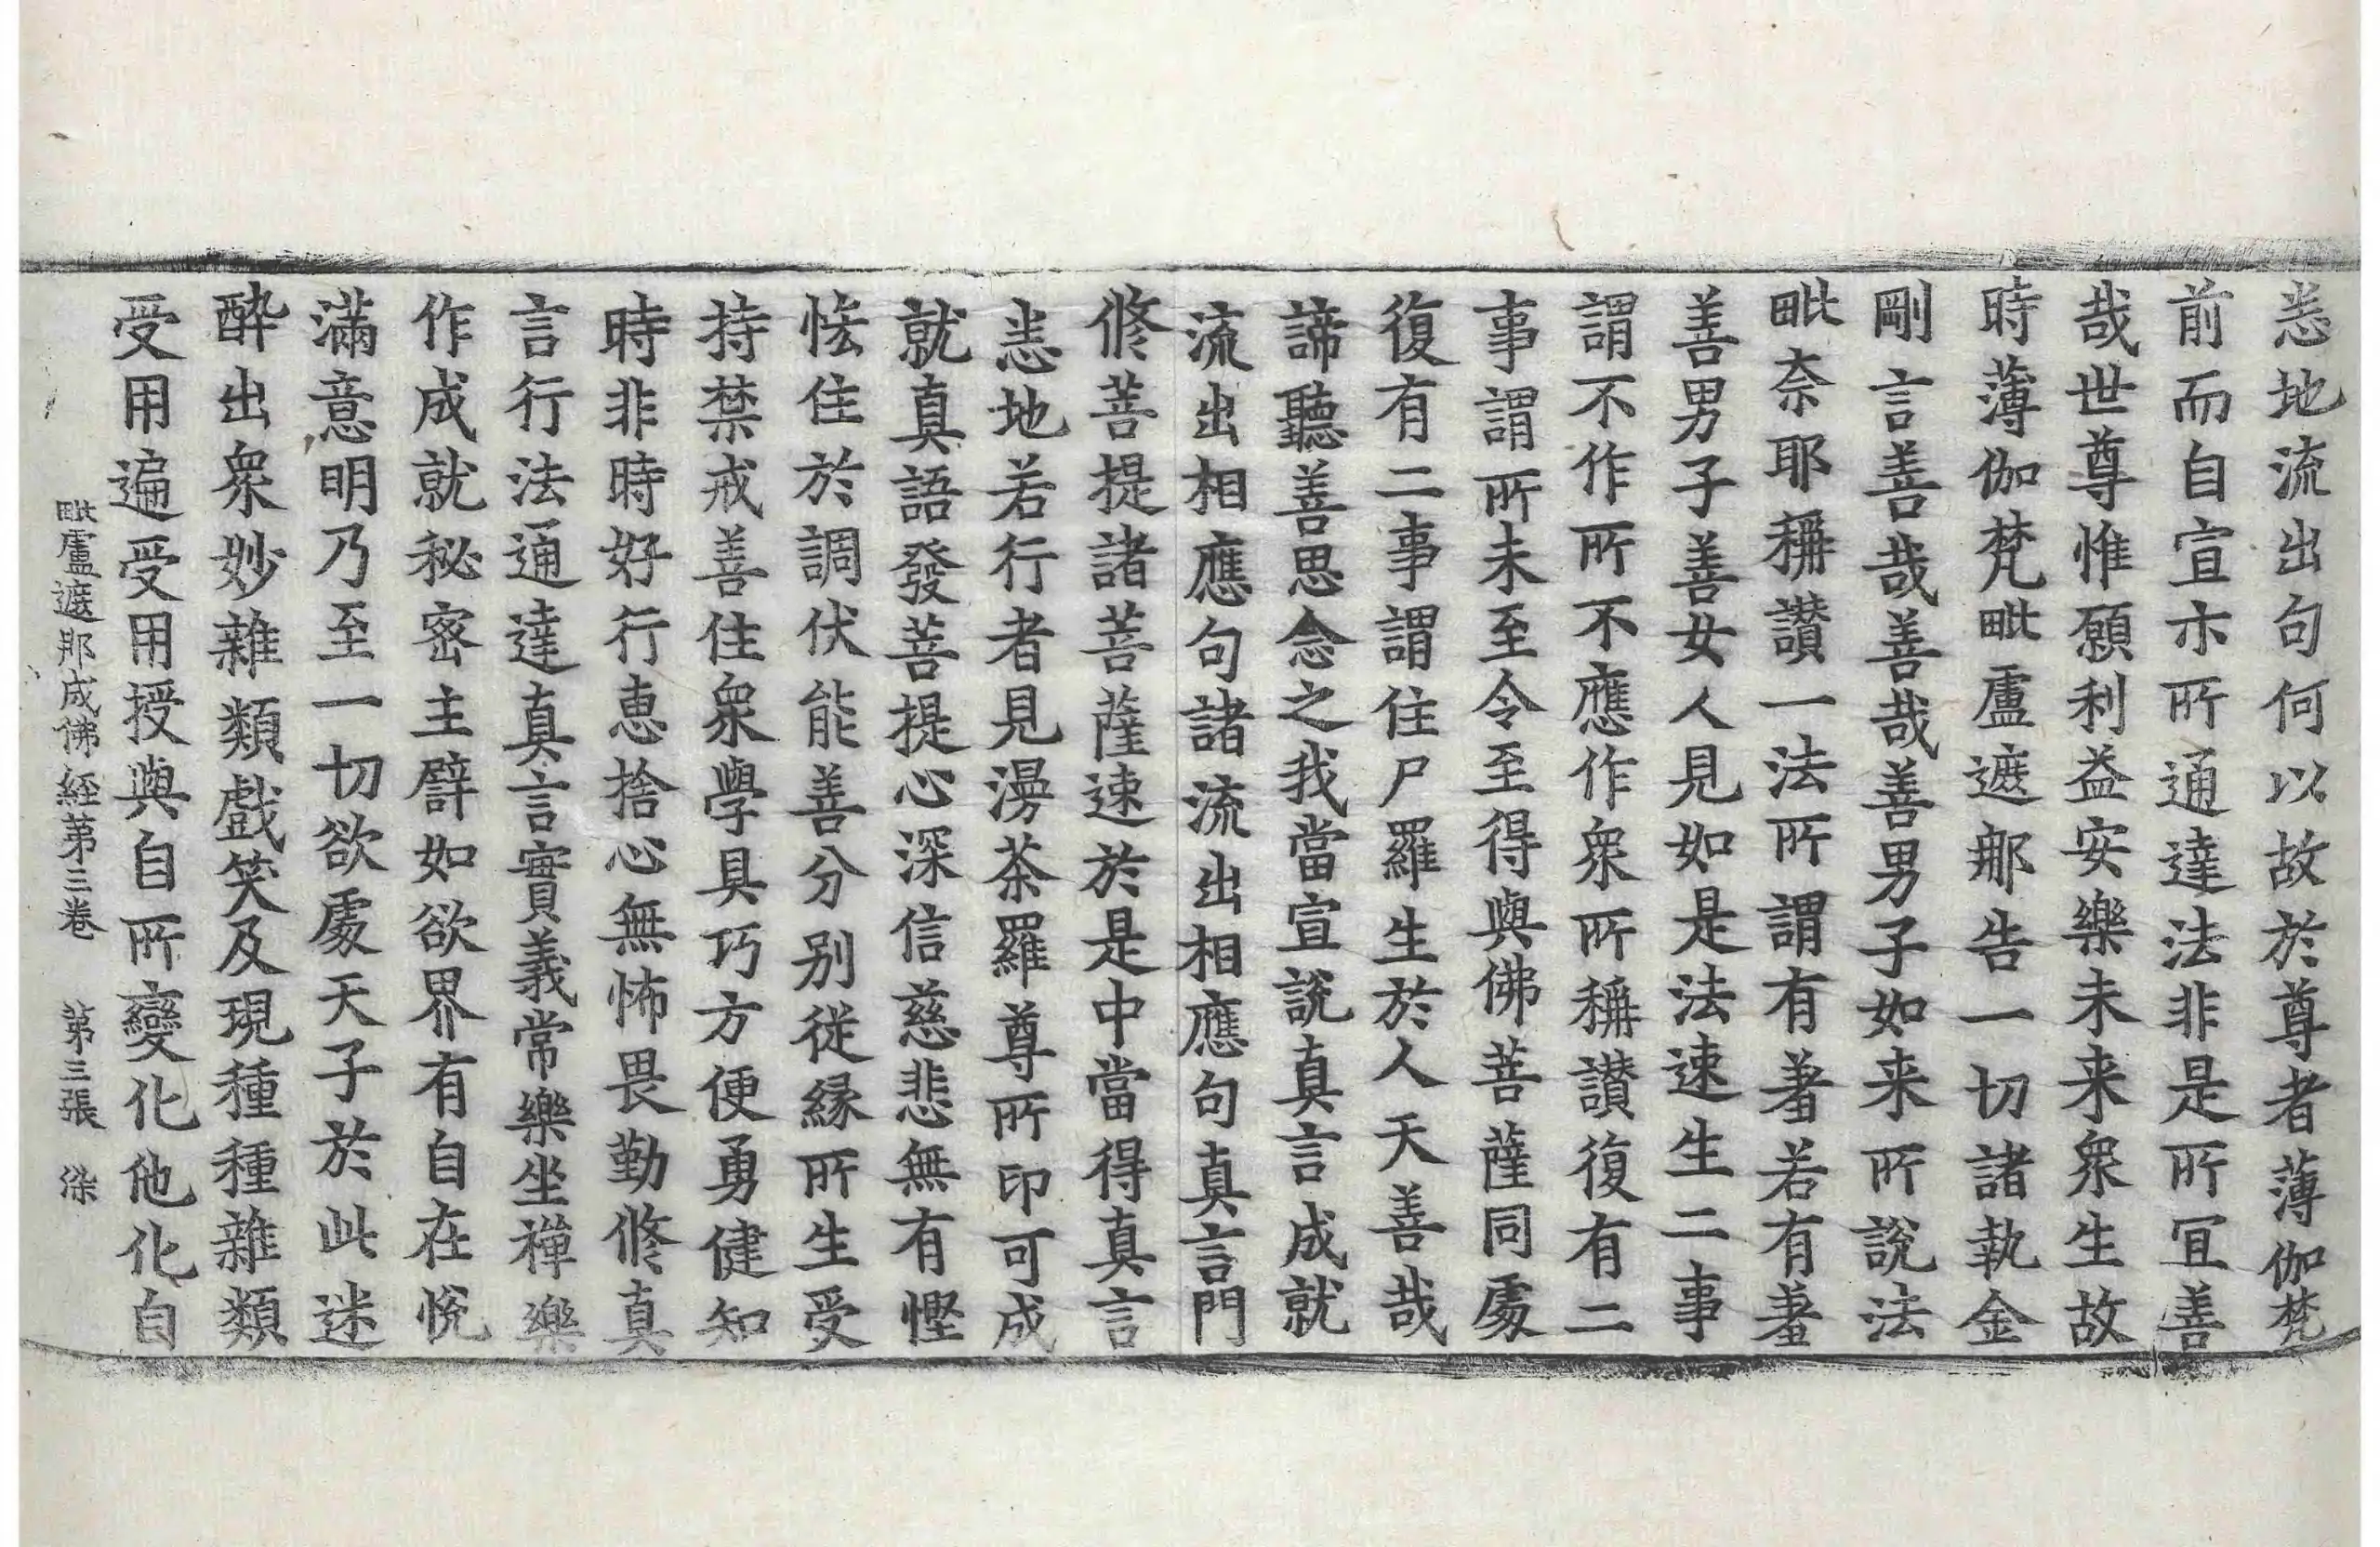 悉地流出句何以故於尊者薄伽梵
前而自宣亦所通達法非是所冝善
哉世尊惟願利益安樂未来衆生故
時薄伽梵毗盧遮那告一切諸執金
剛言善哉善哉善男子如来所說法
毗奈耶稱讃一法所謂有羞若有羞
善男子善女人見如是法速生二事
謂不作所不應作衆所稱讃復有二
事謂所未至令至得與佛菩薩同處
復有二事謂住尸羅生於人天善哉
諦聽善思念之我當宣說真言成就
流出相應句諸流出相應句真言門
修菩提諸菩薩速於是中當得真言
悉地若行者見漫荼羅尊所印可成
就真語發菩提心深信慈悲無有慳
悋住於調伏能善分別従縁所生受
持禁戒善住衆學具巧方便勇健知
時非時好行恵捨心無怖畏勤修真
言行法通達真言實義常樂坐禪樂
作成就秘密主譬如欲界有自在悅
滿意明乃至一切欲處天子於此迷
醉出衆妙雜類戲笑及現種種雜類
受用遍受用授與自所變化他化自
毗盧遮那成佛經第三卷　第三張　染